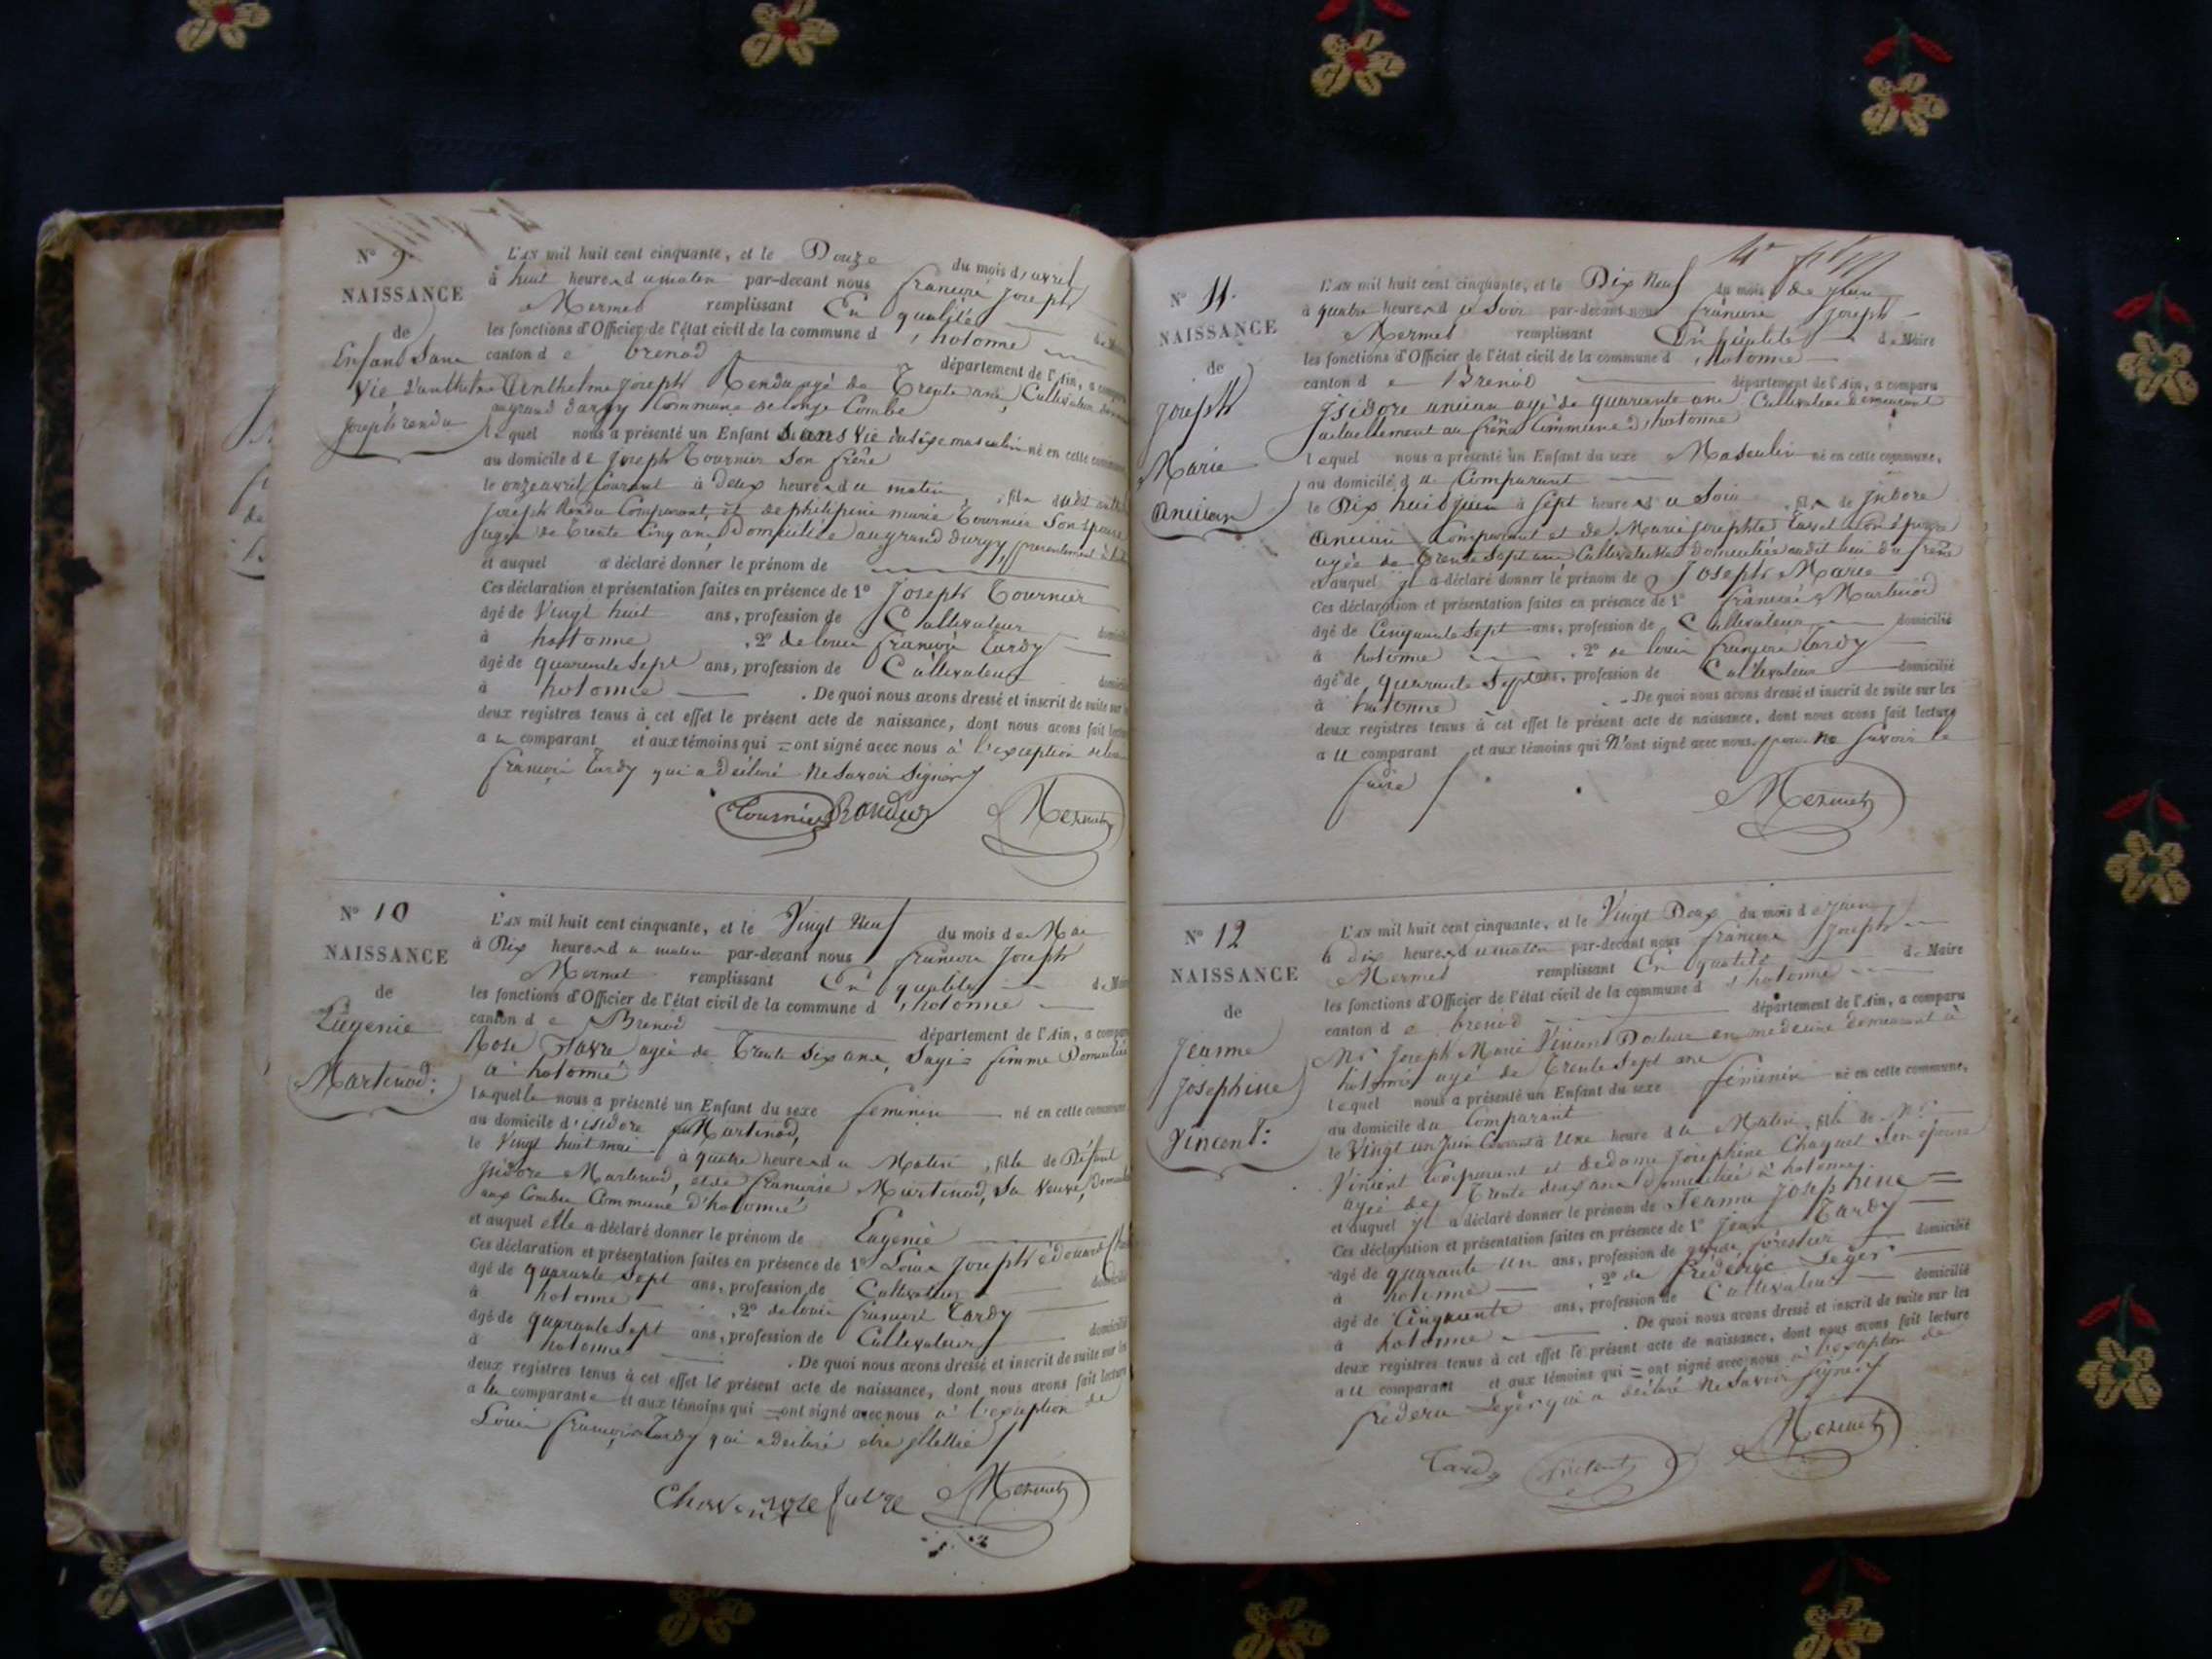 N° 9.
NAISSANCE
de
Enfant Sans
Vie d'anthelme
joseph rendu
L'AN mil huit cent cinquante, et le Douze du mois d'avril
à huit heures du matin par-devant nous françois joseph
Mermet remplissant En qualité de Maire
les fonctions d'Officier de l'état civil de la commune d'hotonne
canton de brenod département de l'Ain, a comparu
Anthelme joseph Rendu agé de Trente ans, Cultivateur
au grand dargy Commune de longe Combe
lequel nous a présenté un Enfant Sans Vie du sexe masculin né en cette commune
au domicile de joseph Tournier Son frère
le onze avril Courant à Deux heures du matin, fils dudit
joseph Rendu Comparant, et de philipine marie Tournier Son épouse
agée de Trente Cinq ans Domiciliée au grand durgy, presentement
et auquel a déclaré donner le prénom de
Ces déclaration et présentation faites en présence de 1° Joseph Tournier
âgé de Vingt huit ans, profession de Cultivateur
à hottonne, 2° de louis françois Tardy
âgé de quarante Sept ans, profession de Cultivateur
à hotonne. De quoi nous avons dressé et inscrit de suite sur
deux registres tenus à cet effet le présent acte de naissance, dont nous avons fait
au comparant et aux témoins qui = ont signé avec nous à l'exception de
françois Tardy qui a déclaré Ne Savoir Signer
Tournier Rendu Mermet
N° 10
NAISSANCE
de
Eugenie
Martinod:
L'AN mil huit cent cinquante, et le Vingt Neuf du mois de Mai
à Dix heures du matin par-devant nous françois joseph
Mermet remplissant En qualité de Maire
les fonctions d'Officier de l'état civil de la commune d'hotonne
canton de Brenod département de l'Ain, a comparu
Rose favre agée de Trente Six ans, Sage = femme Domiciliée
à hotonne
laquelle nous a présenté un Enfant du sexe feminin né en cette commune
au domicile d'isidore feu Martinod,
le Vingt huit mai à quatre heures du Matin, fille de Défunt
Isidore Martinod, et de françoise Martinod, Sa Veuve,
aux Combes Commune d'hotonne
et auquel elle a déclaré donner le prénom de Eugenie
Ces déclaration et présentation faites en présence de 1° Louis joseph édouard
âgé de quarante Sept ans, profession de Cultivateur
à hotonne, 2° de louis françois Tardy
âgé de quarante Sept ans, profession de Cultivateur domicilié
à hotonne. De quoi nous avons dressé et inscrit de suite sur les
deux registres tenus à cet effet le présent acte de naissance, dont nous avons fait lecture
a la comparante et aux témoins qui = ont signé avec nous à l'exception de
Louis françois Tardy qui a déclaré être illettré
rose favre Mermet
N° 11.
NAISSANCE
de
joseph
Marie
Ancian
L'AN mil huit cent cinquante, et le Dix Neuf du mois de juin
à quatre heures du Soir par-devant nous françois joseph
Mermet remplissant En qualité de Maire
les fonctions d'Officier de l'état civil de la commune d'hotonne
canton de Brenod département de l'Ain, a comparu
Isidore ancian agé de quarante ans Cultivateur demeurant
actuellement au frêne Commune d'hotonne
lequel nous a présenté un Enfant du sexe Masculin né en cette commune,
au domicile du Comparant
le Dix huit juin à Sept heures du Soir, fils de Isidore
Ancian Comparant et de Marie josephte Son épouse
agée de Trente Sept ans Cultivatrice domiciliée audit lieu du frêne
et auquel il a déclaré donner le prénom de Joseph Marie
Ces déclaration et présentation faites en présence de 1° françois Martinod
âgé de Cinquante Sept ans, profession de Cultivateur domicilié
à hotonne, 2° de louis françois Tardy
âgé de quarante Sept ans, profession de Cultivateur domicilié
à hotonne. De quoi nous avons dressé et inscrit de suite sur les
deux registres tenus à cet effet le présent acte de naissance, dont nous avons fait lecture
au comparant et aux témoins qui N'ont signé avec nous, pour ne Savoir le
faire
Mermet
N° 12
NAISSANCE
de
Jeanne
Josephine
Vincent:
L'AN mil huit cent cinquante, et le Vingt Deux du mois de juin
à dix heures du matin par-devant nous françois joseph
Mermet remplissant En qualité de Maire
les fonctions d'Officier de l'état civil de la commune d'hotonne
canton de brenod département de l'Ain, a comparu
Mr Joseph Marie Vincent Docteur en medecine demeurant à
hotonne agé de Trente Sept ans
lequel nous a présenté un Enfant du sexe féminin né en cette commune,
au domicile du Comparant
le Vingt un Juin Courant à Une heure du Matin, fille de Mr
Vincent Comparant et de dame Josephine Chaquet Son épouse
agée de Trente deux ans Domiciliée à hotonne
et auquel il a déclaré donner le prénom de Jeanne Josephine
Ces déclaration et présentation faites en présence de 1° Jean Tardy
âgé de quarante un ans, profession de garde forestier domicilié
à hotonne, 2° de frédéric Leger
âgé de Cinquante ans, profession de Cultivateur domicilié
à hotonne. De quoi nous avons dressé et inscrit de suite sur les
deux registres tenus à cet effet le présent acte de naissance, dont nous avons fait lecture
au comparant et aux témoins qui = ont signé avec nous à l'exception de
frederic Leger qui a déclaré Ne Savoir Signer
Tardy Vincent Mermet